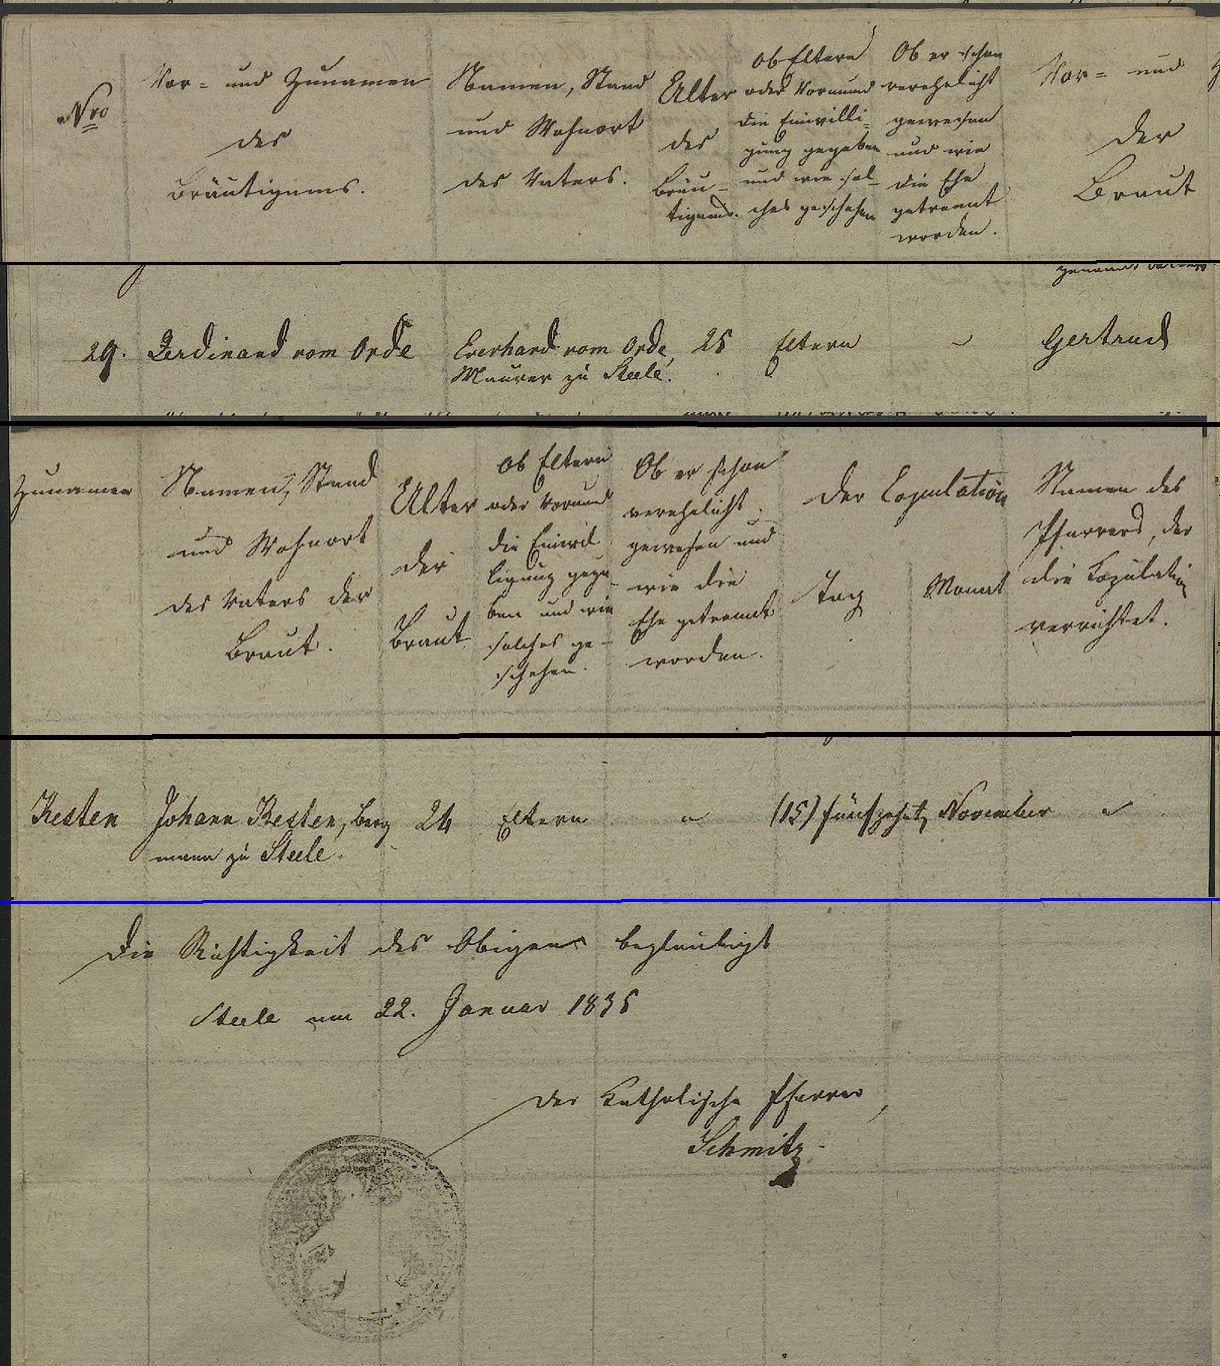 Nro
Vor- und Zunamen
des
Bräutigams.
Namen, Stand
und Wohnort
des Vaters.
Alter
des
Bräu-
tigams.
Ob Eltern
oder Vormund
die Einwilli-
gung gegeben
und wie sol-
ches geschehen
Ob er schon
verehelicht
gewesen
und wie
die Ehe
getrennt
worden.
Vor- und
der
Braut
29.
Ferdinand vom Orde
Everhard vom Orde,
Maurer zu Steele.
25
Eltern
Gertrud
Zunamen
Namen, Stand
und Wohnort
des Vaters der
Braut.
Alter
der
Braut
Ob Eltern
oder Vormund
die Einwil-
ligung gege-
ben und wie
solches ge-
schehen.
Ob er schon
verehelicht
gewesen und
wie die
Ehe getrennt
worden.
Der Copulation
Tag
Monat
Namen des
Pfarrers, der
die Copulation
verrichtet.
Kesten
Johann Kesten, Berg
mann zu Steele.
24
Eltern
(15) fünfzehnt,
November
Die Richtigkeit des Obigen beglaubigt
Steele am 22. Januar 1835
Der katholische Pfarrer,
Schmitz